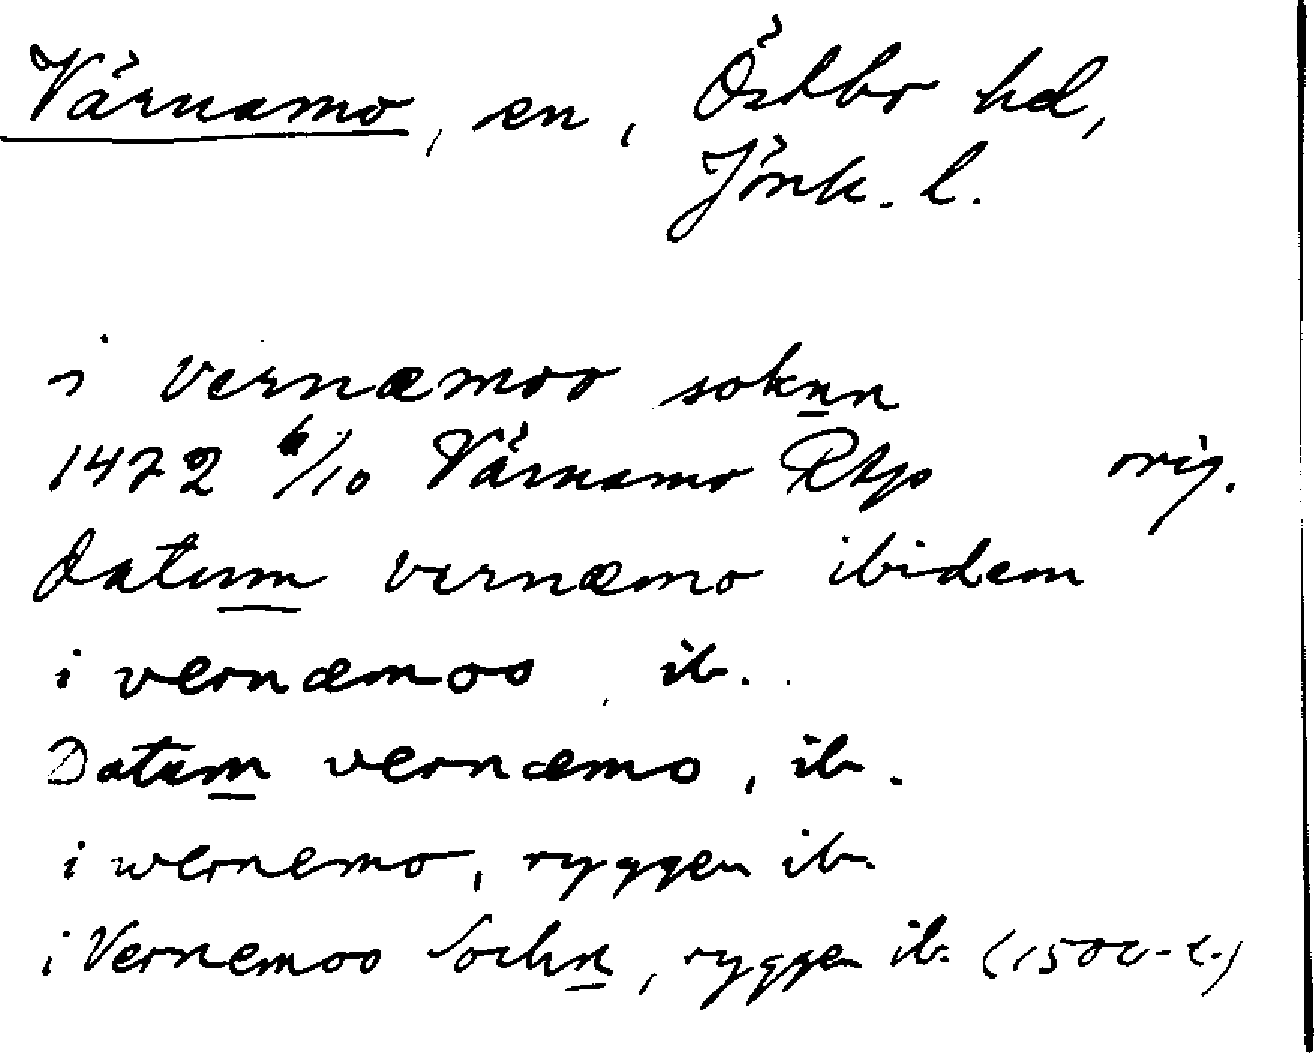 Värnamo, sn, Östbo hd,
Jönk. l.
i vernæmoo soknn
1472 6/10 Värnamo Rkp orig.
datum vernæmo ibidem
i vernæmoo ib.
Datum vernæmo, ib.
i wernemo, ryggen ib.
i Vernemoo Sochn, ryggen ib. (1500-t.)